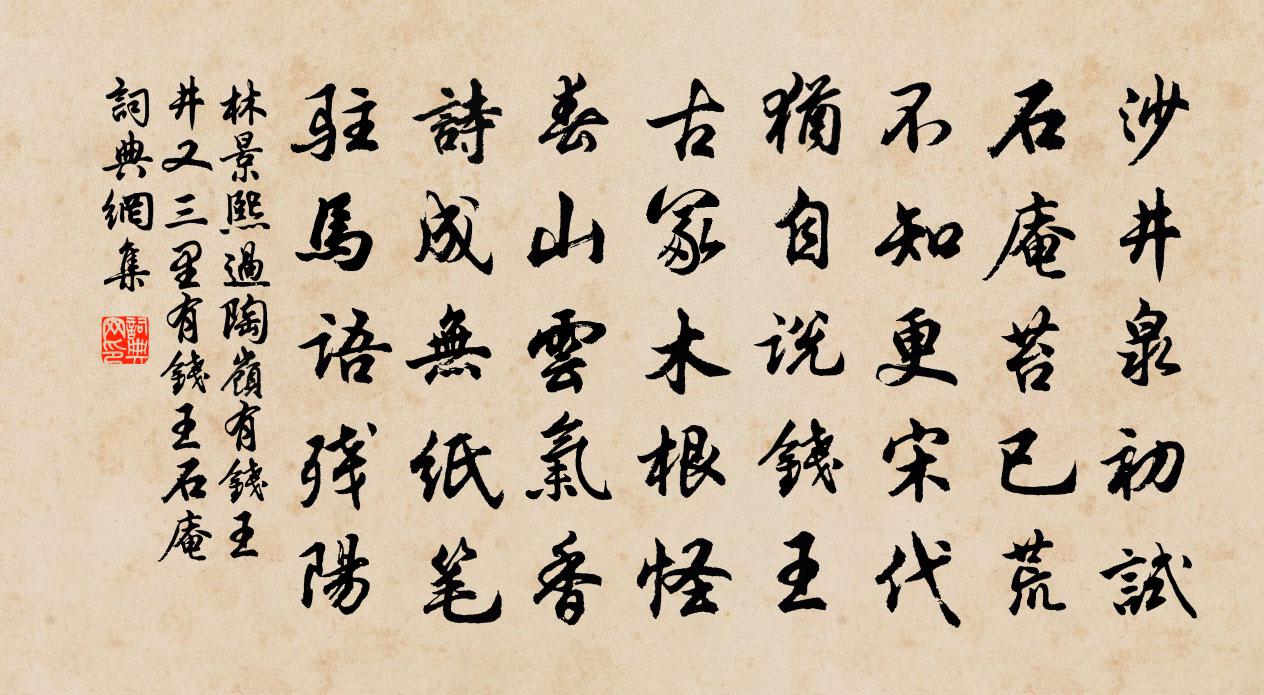 沙井泉初試
石庵苔已荒
不知更宋代
猶自说錢王
古冢木根怪
春山雲氣香
詩成無紙笔
駐馬語残陽
林景熙過陶嶺有錢王
井又三里有錢王石庵
詞典網集
詞典网印